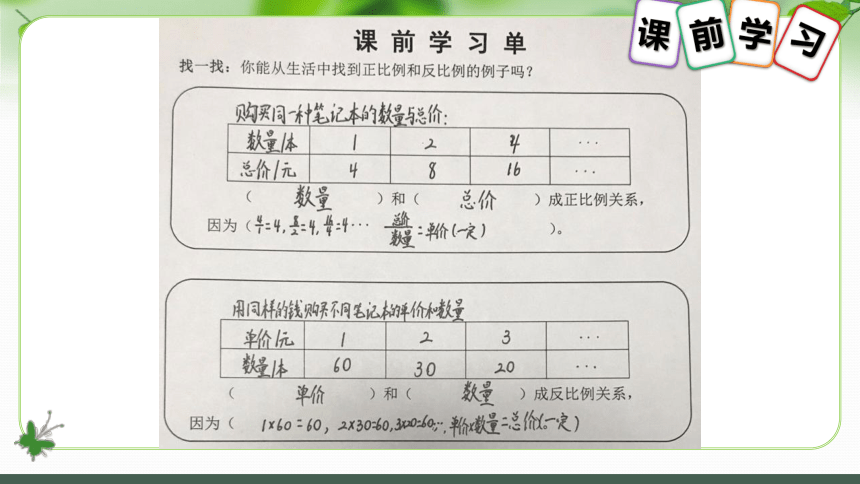 课前学习
课 前 学 习 单
找一找：你能从生活中找到正比例和反比例的例子吗？
购买同一种笔记本的数量与总价：
数量/本 1 2 4 ···
总价/元 4 8 16 ···
（ 数量 ）和（ 总价 ）成正比例关系，
因为（4/1=4，8/2=4，16/4=4··· 总价/数量=单价（一定） ）。
用同样的钱购买不同笔记本的单价和数量
单价/元 1 2 3 ···
数量/本 60 30 20 ···
（ 单价 ）和（ 数量 ）成反比例关系，
因为（ 1×60=60，2×30=60，3×20=60···，单价×数量=总价（一定）